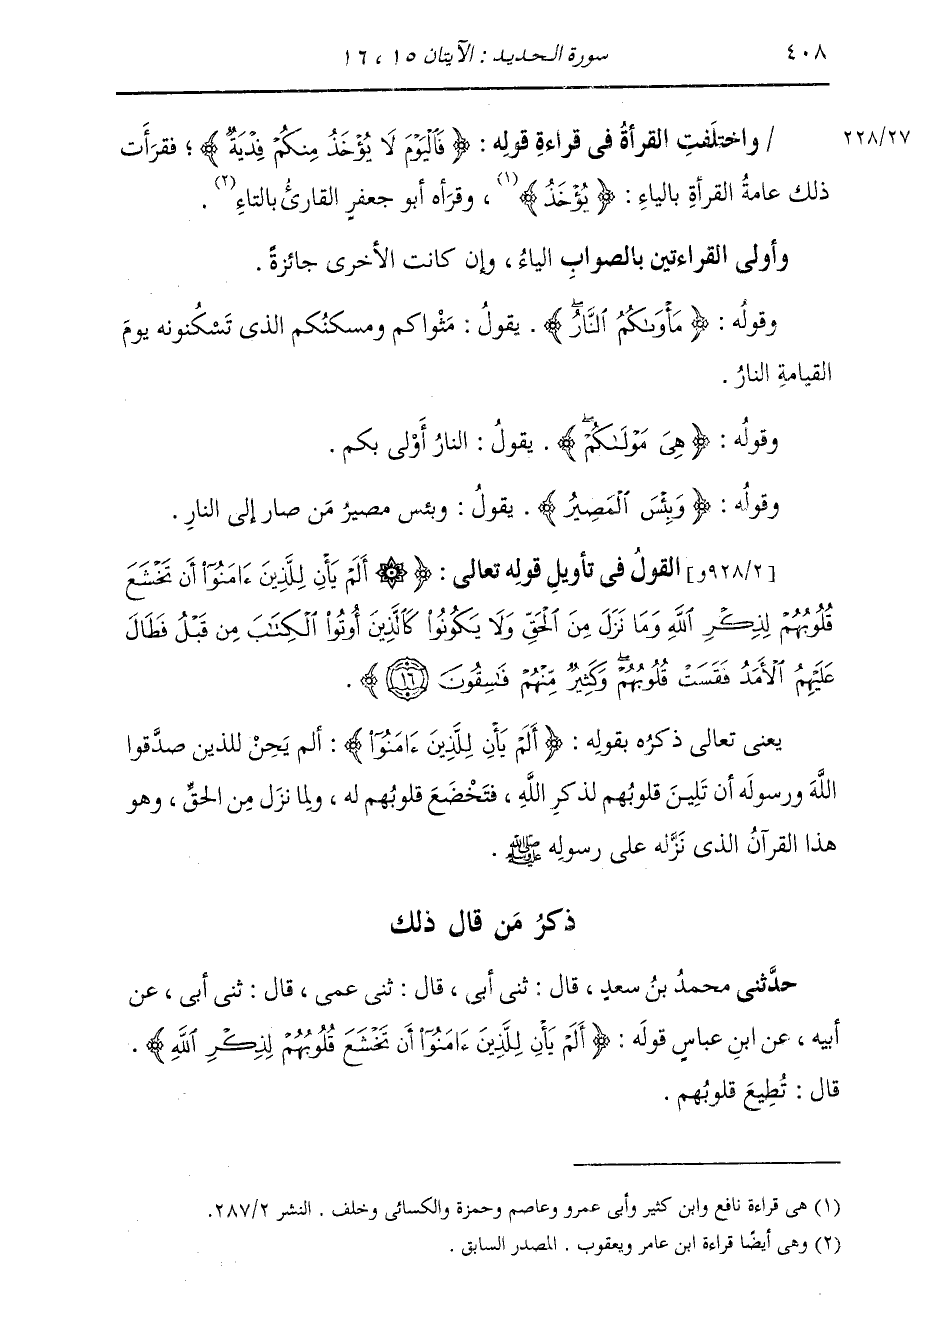 ٤٠٨ سورة الحديد : الآيتان ١٥ ، ١٦
٢٢٨/٢٧ / واختلَفتِ القرأةُ فى قراءةِ قولِه : ﴿ فَٱلْيَوْمَ لَا يُؤْخَذُ مِنكُمْ فِدْيَةٌ ﴾ ؛ فقرَأَت
ذلك عامةُ القرأةِ بالياءِ : ﴿ يُؤْخَذُ ﴾(١) ، وقرَأه أبو جعفرٍ القارئُ بالتاءِ(٢) .
وأولى القراءتين بالصوابِ الياءُ ، وإن كانت الأخرى جائزةً .
وقولُه : ﴿ مَأْوَىٰكُمُ ٱلنَّارُ ۖ ﴾ . يقولُ : مَثْواكم ومسكنُكم الذى تَسْكُنونه يومَ
القيامةِ النارُ .
وقولُه : ﴿ هِىَ مَوْلَىٰكُمْ ۖ ﴾ . يقولُ : النارُ أَوْلى بكم .
وقولُه : ﴿ وَبِئْسَ ٱلْمَصِيرُ ﴾ . يقولُ : وبئس مصيرُ مَن صار إلى النارِ .
[٩٢٨/٢و] القولُ فى تأويلِ قولِه تعالى : ﴿ ۞ أَلَمْ يَأْنِ لِلَّذِينَ ءَامَنُوٓا۟ أَن تَخْشَعَ
قُلُوبُهُمْ لِذِكْرِ ٱللَّهِ وَمَا نَزَلَ مِنَ ٱلْحَقِّ وَلَا يَكُونُوا۟ كَٱلَّذِينَ أُوتُوا۟ ٱلْكِتَٰبَ مِن قَبْلُ فَطَالَ
عَلَيْهِمُ ٱلْأَمَدُ فَقَسَتْ قُلُوبُهُمْ ۖ وَكَثِيرٌ مِّنْهُمْ فَٰسِقُونَ ١٦ ﴾ .
يعنى تعالى ذكرُه بقولِه : ﴿ أَلَمْ يَأْنِ لِلَّذِينَ ءَامَنُوٓا۟ ﴾ : ألم يَحِنْ للذين صدَّقوا
اللَّهَ ورسولَه أن تَلِينَ قلوبُهم لذكرِ اللَّهِ ، فتَخْضَعَ قلوبُهم له ، ولِما نزَل مِن الحقِّ ، وهو
هذا القرآنُ الذى نَزَّله على رسولِه ﷺ .
ذكرُ مَن قال ذلك
حدَّثنى محمدُ بنُ سعدٍ ، قال : ثنى أبى ، قال : ثنى عمى ، قال : ثنى أبى ، عن
أبيه ، عن ابنِ عباسٍ قولَه : ﴿ أَلَمْ يَأْنِ لِلَّذِينَ ءَامَنُوٓا۟ أَن تَخْشَعَ قُلُوبُهُمْ لِذِكْرِ ٱللَّهِ ﴾ .
قال : تُطِيعَ قلوبُهم .
(١) هى قراءة نافع وابن كثير وأبى عمرو وعاصم وحمزة والكسائى وخلف . النشر ٢٨٧/٢.
(٢) وهى أيضًا قراءة ابن عامر ويعقوب . المصدر السابق .